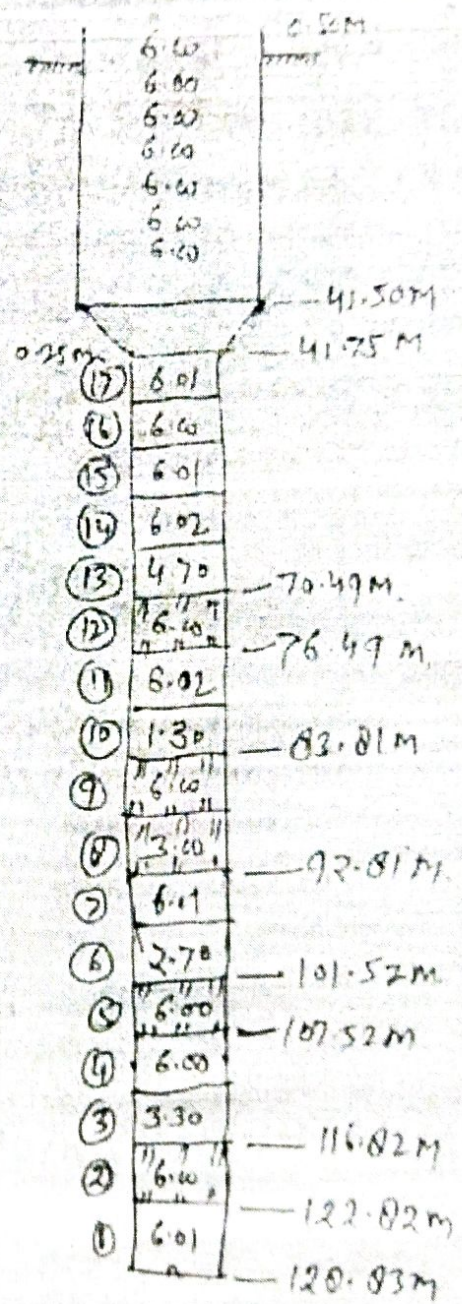 0.50M
6.00
6.00
6.00
6.00
6.00
6.00
6.00
41.50M
0.25M 41.75M
17 6.01
16 6.00
15 6.01
14 6.02
13 4.70
70.49M.
12 6.00
76.49M.
11 6.02
10 1.30
83.81M
9 6.00
8 3.00
92.81M.
7 6.01
6 2.70
101.52M
5 6.00
107.52M
4 6.00
3 3.30
116.82M
2 6.00
122.82M
1 6.01
128.83M